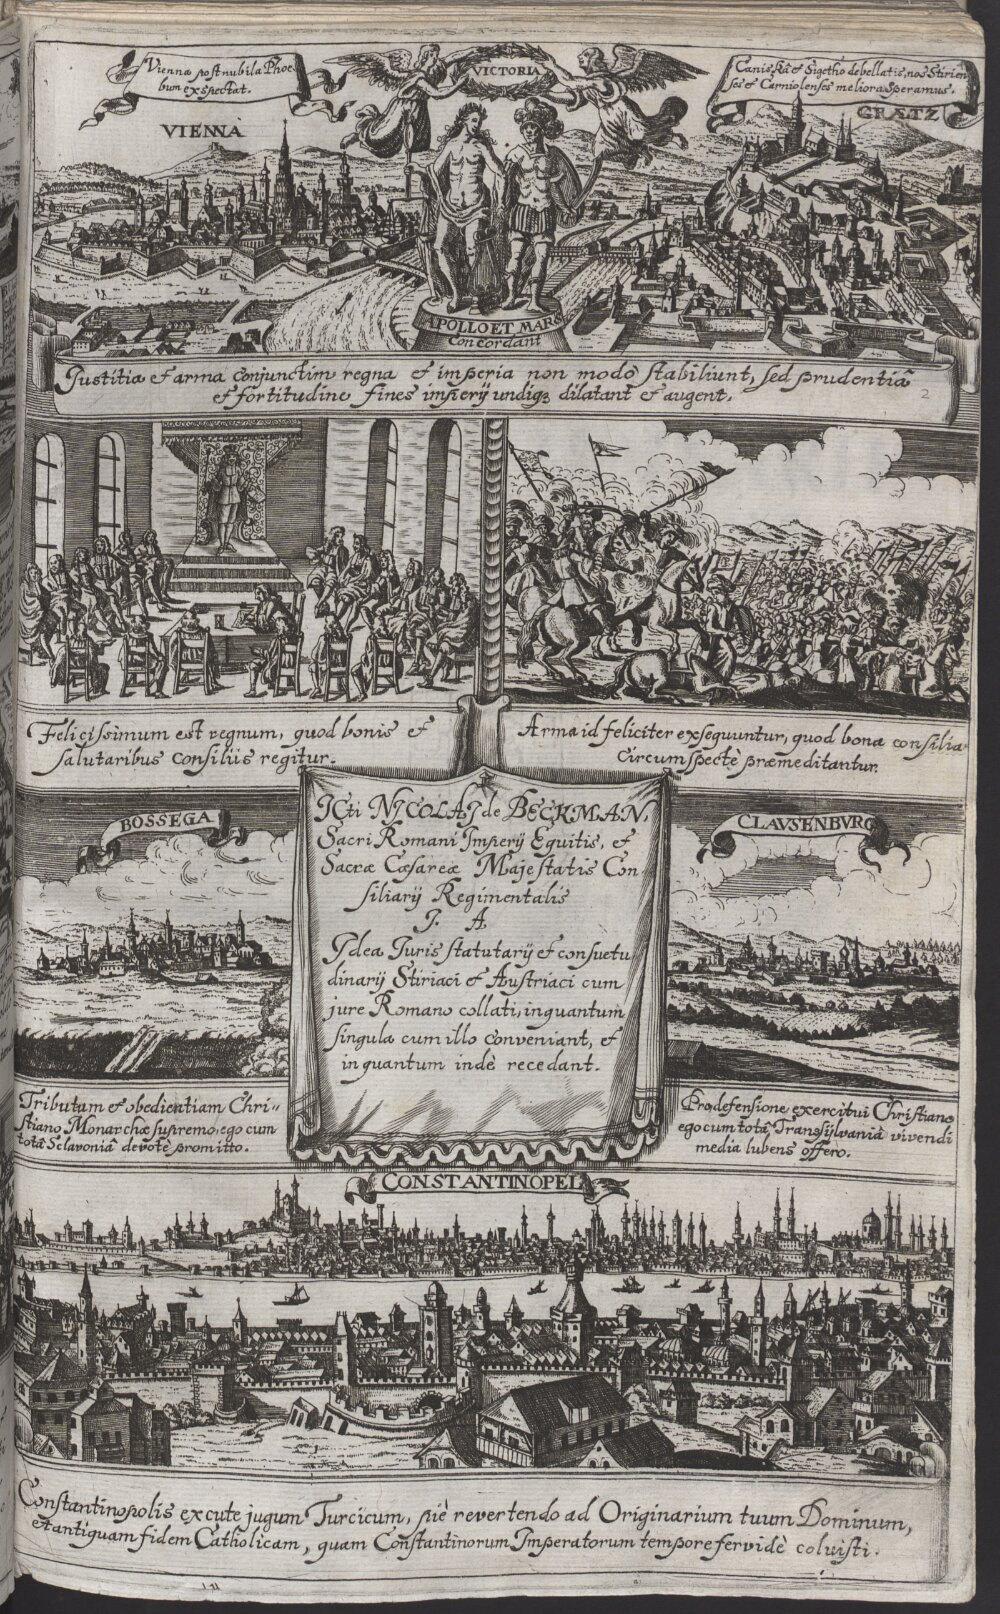 Vienna post nubila Phoe
bum exspectat.
VIENNA
VICTORIA
Caniskâ et Sigethô debellatis, nos Stirien
ses et Carniolenses meliora Speramus.
GRÆTZ
APOLLO ET MARS
Concordant
Justitia et arma conjunctim regna et imperia non modo stabiliunt, sed prudentiâ
et fortitudine fines imperij undiqz dilatant et augent.
2
Felicissimum est regnum, quod bonis et
salutaribus consiliis regitur.
Arma id feliciter exsequuntur, quod bona consilia
Circumspectè præmeditantur.
BOSSEGA
CLAVSENBVRG
JCti NJCOLAJ de BECKMAN,
Sacri Romani Imperij Equitis, et
Sacræ Cæsareæ Majestatis Con
siliarij Regimentalis
J. A.
Jdea Juris statutarij et consuetu
dinarij Stiriaci et Austriaci cum
jure Romano collati, inquantum
singula cum illo conveniant, et
in quantum indè recedant.
Tributum et obedientiam Chri-
stiano Monarchæ supremo, ego cum
totâ Sclavoniâ devotè promitto.
Pro defensione, exercitui Christiano
ego cum totâ Transÿlvaniâ vivendi
media lubens offero.
CONSTANTINOPEL
Constantinopolis excute jugum Turcicum, piè revertendo ad Originarium tuum Dominum,
et antiquam fidem Catholicam, quam Constantinorum Jmperatorum tempore fervidè coluisti.